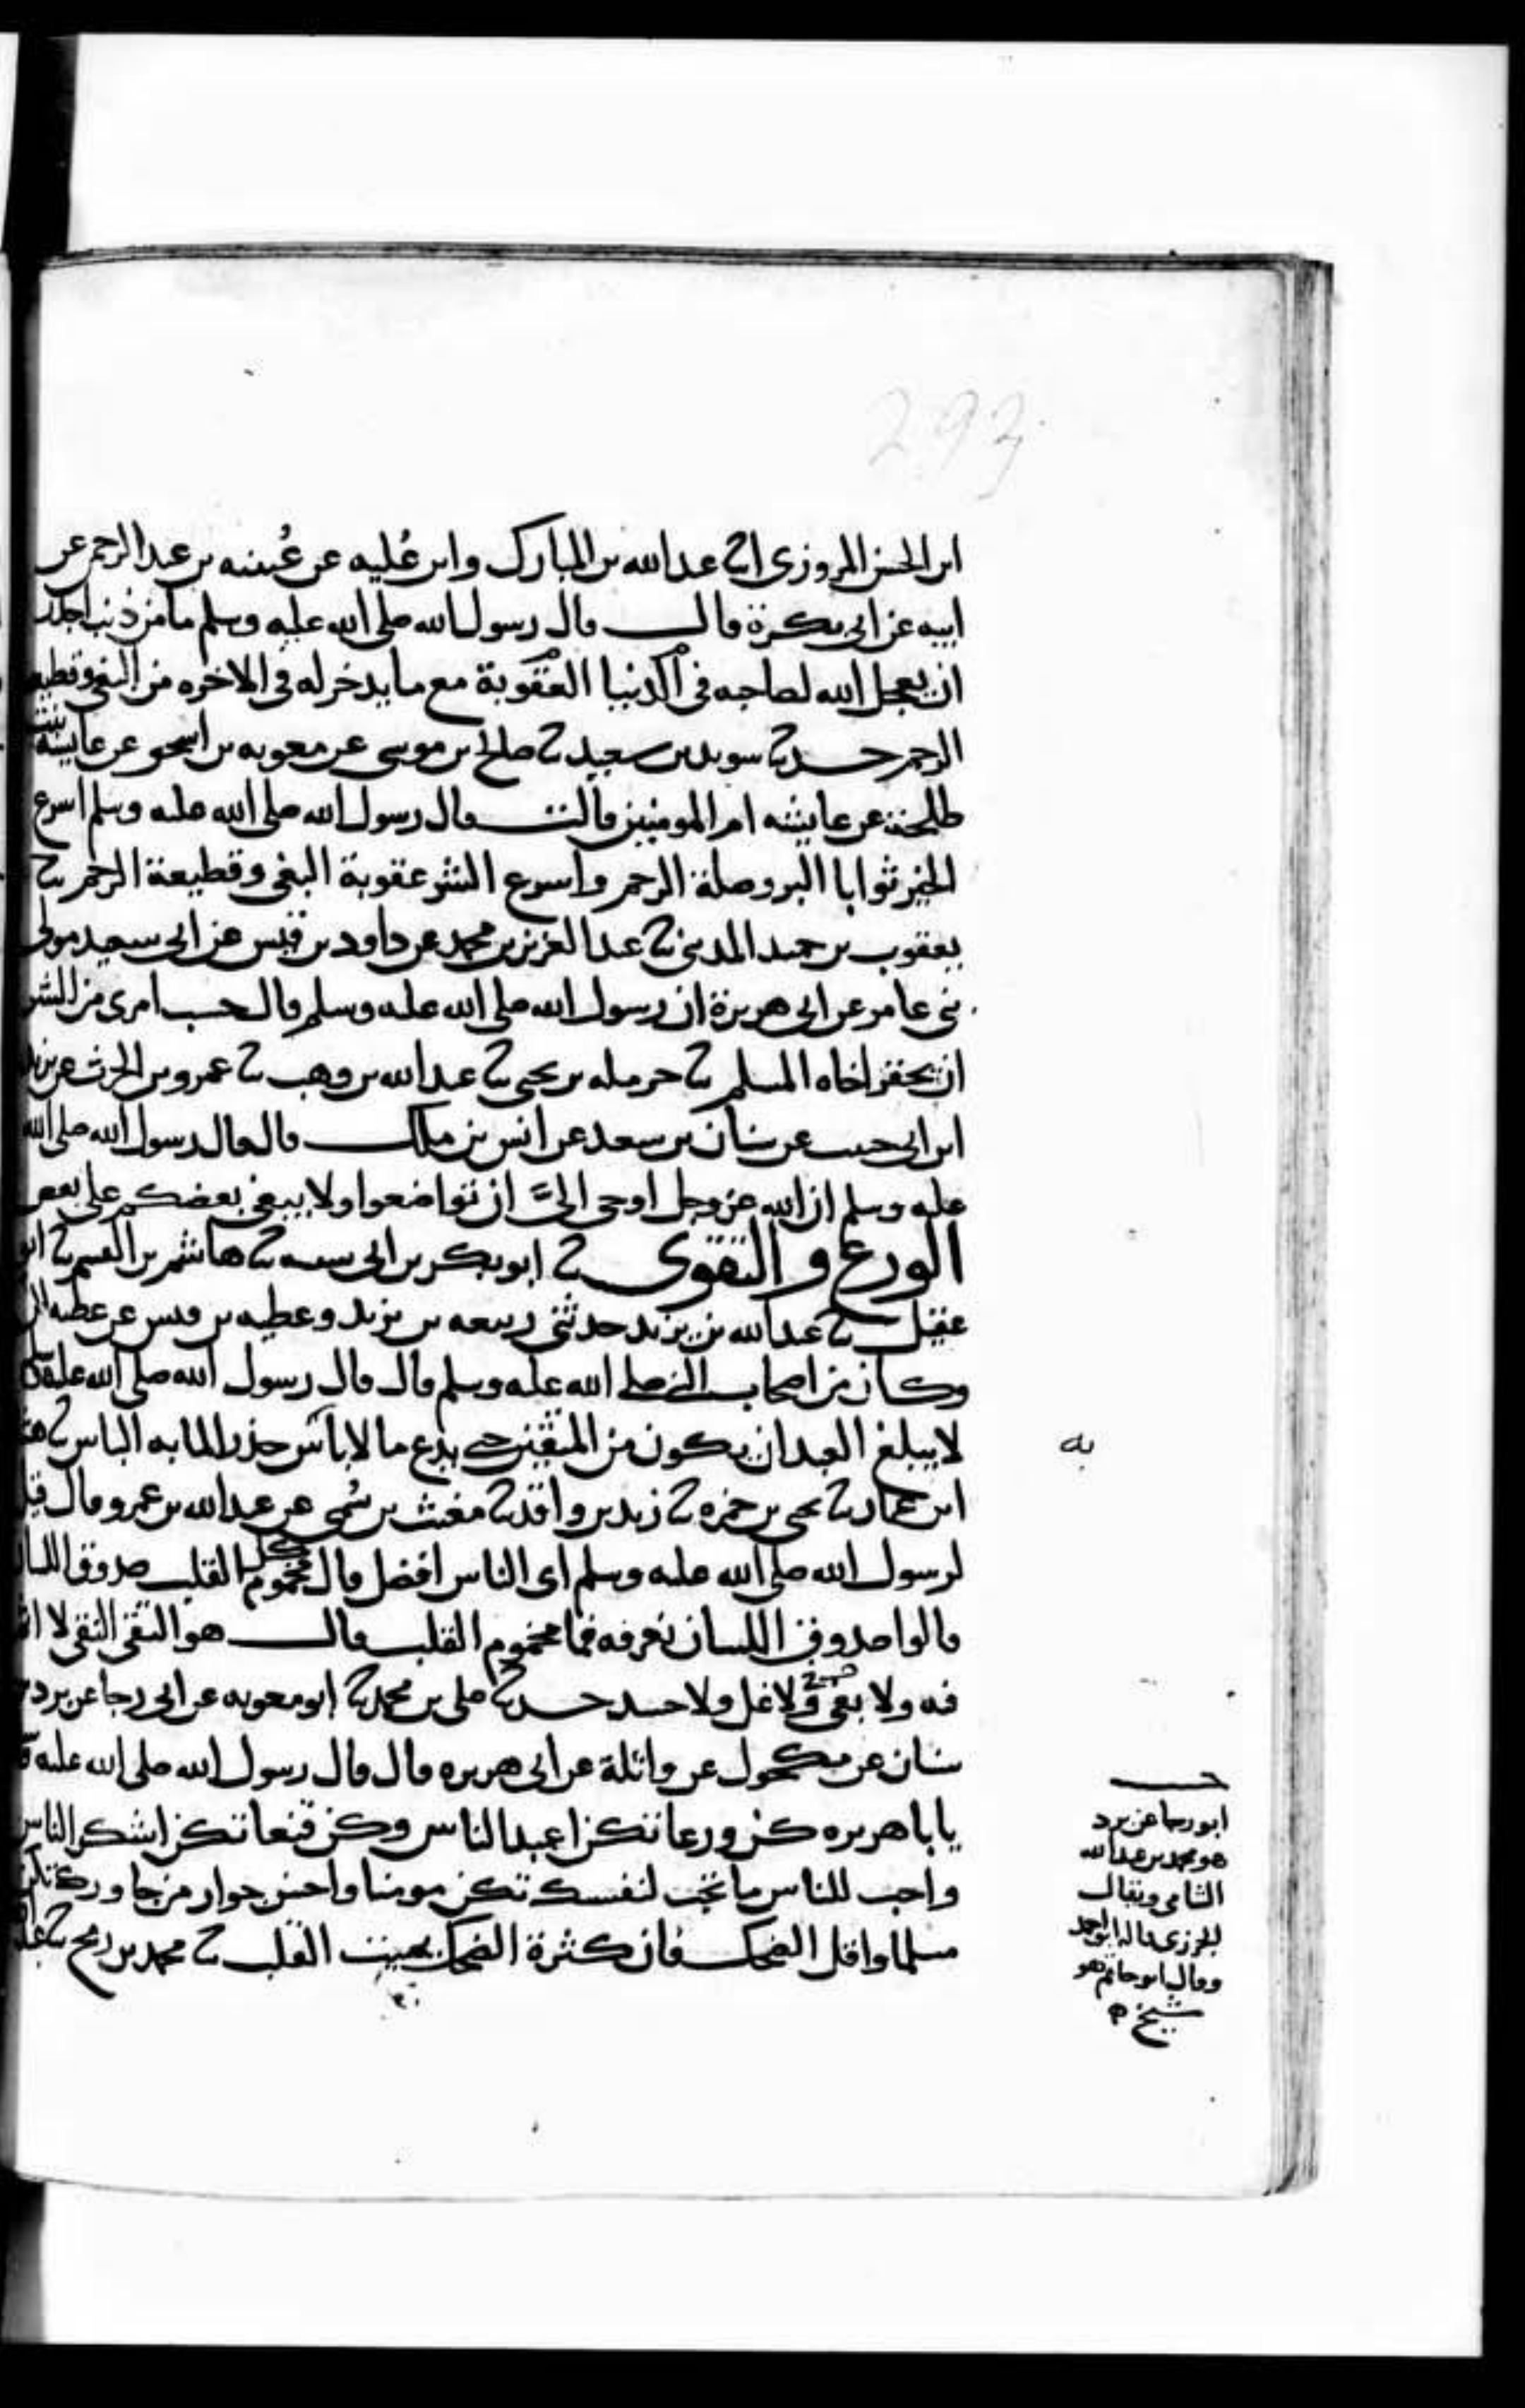 293
ابن الحسن المروزي انا عبد الله بن المبارك وابن عُليه عن عُيينه بن عبد الرحمن عن
ابيه عن ابي بكرة قال قال رسول الله صلى الله عليه وسلم ما من ذنب اجدر
ان يعجل الله لصاحبه في الدنيا العقوبة مع ما يدخر له في الاخره من البغي وقطيعه
الرحم حدثنا سويد بن سعيد ثنا صالح بن موسى عن معويه بن اسحق عن عايشه بنت
طلحة عن عايشه ام المومنين قالت قال رسول الله صلى الله عليه وسلم اسرع
الخير ثوابا البر وصلة الرحم واسرع الشر عقوبة البغي وقطيعة الرحم ثنا
يعقوب بن حميد المدني ثنا عبد العزيز بن محمد عن داود بن قيس عن ابي سعيد مولى
بني عامر عن ابي هريرة ان رسول الله صلى الله عليه وسلم قال حسب امرى من الشر
ان يحقر اخاه المسلم ثنا حرمله بن يحيى ثنا عبد الله بن وهب ثنا عمرو بن الحرث عن يزيد
ابن ابي حبيب عن سنان بن سعد عن انس بن ملك قال قال رسول الله صلى الله
عليه وسلم ان الله عز وجل اوحى اليَّ ان تواضعوا ولا يبغي بعضكم على بعض
الورع والتقوى ثنا ابو بكر بن ابي شيبه ثنا هاشم بن القسم ثنا ابو
عقيل ثنا عبد الله بن يزيد حدثني ربيعه بن يزيد وعطيه بن قيس عن عطيه
وكان من اصحاب النبي صلى الله عليه وسلم قال قال رسول الله صلى الله عليه
لا يبلغ العبد ان يكون من المتقين حتى يدع ما لا باس حذرا لما به الباس ثنا
به
ابن عمار ثنا يحيى بن حمزه ثنا زيد بن واقد ثنا مغيث بن سُمي عن عبد الله بن عمرو قال قيل
لرسول الله صلى الله عليه وسلم اي الناس افضل قال كل مخموم القلب صدوق اللسان
قالوا صدوق اللسان نعرفه فما مخموم القلب قال هو التقي النقي لا اثم
فيه ولا بغي ولا غل ولا حسد حدثنا علي بن محمد ثنا ابو معويه عن ابي رجا عن برد
سنان عن مكحول عن واثلة عن ابي هريره قال قال رسول الله صلى الله عليه
يا با هريره كن ورعا تكن اعبد الناس وكن قنعا تكن اشكر الناس
واحب للناس ما تحب لنفسك تكن مومنا واحسن جوار من جاورك تكن
مسلما واقل الضحك فان كثرة الضحك تميت القلب ثنا محمد بن رمح ثنا
ابو رجا عن برد
هو محمد بن عبد الله
الشامي ويقال
الجزري قاله ابو احمد
وقال ابو حاتم هو
شيخ